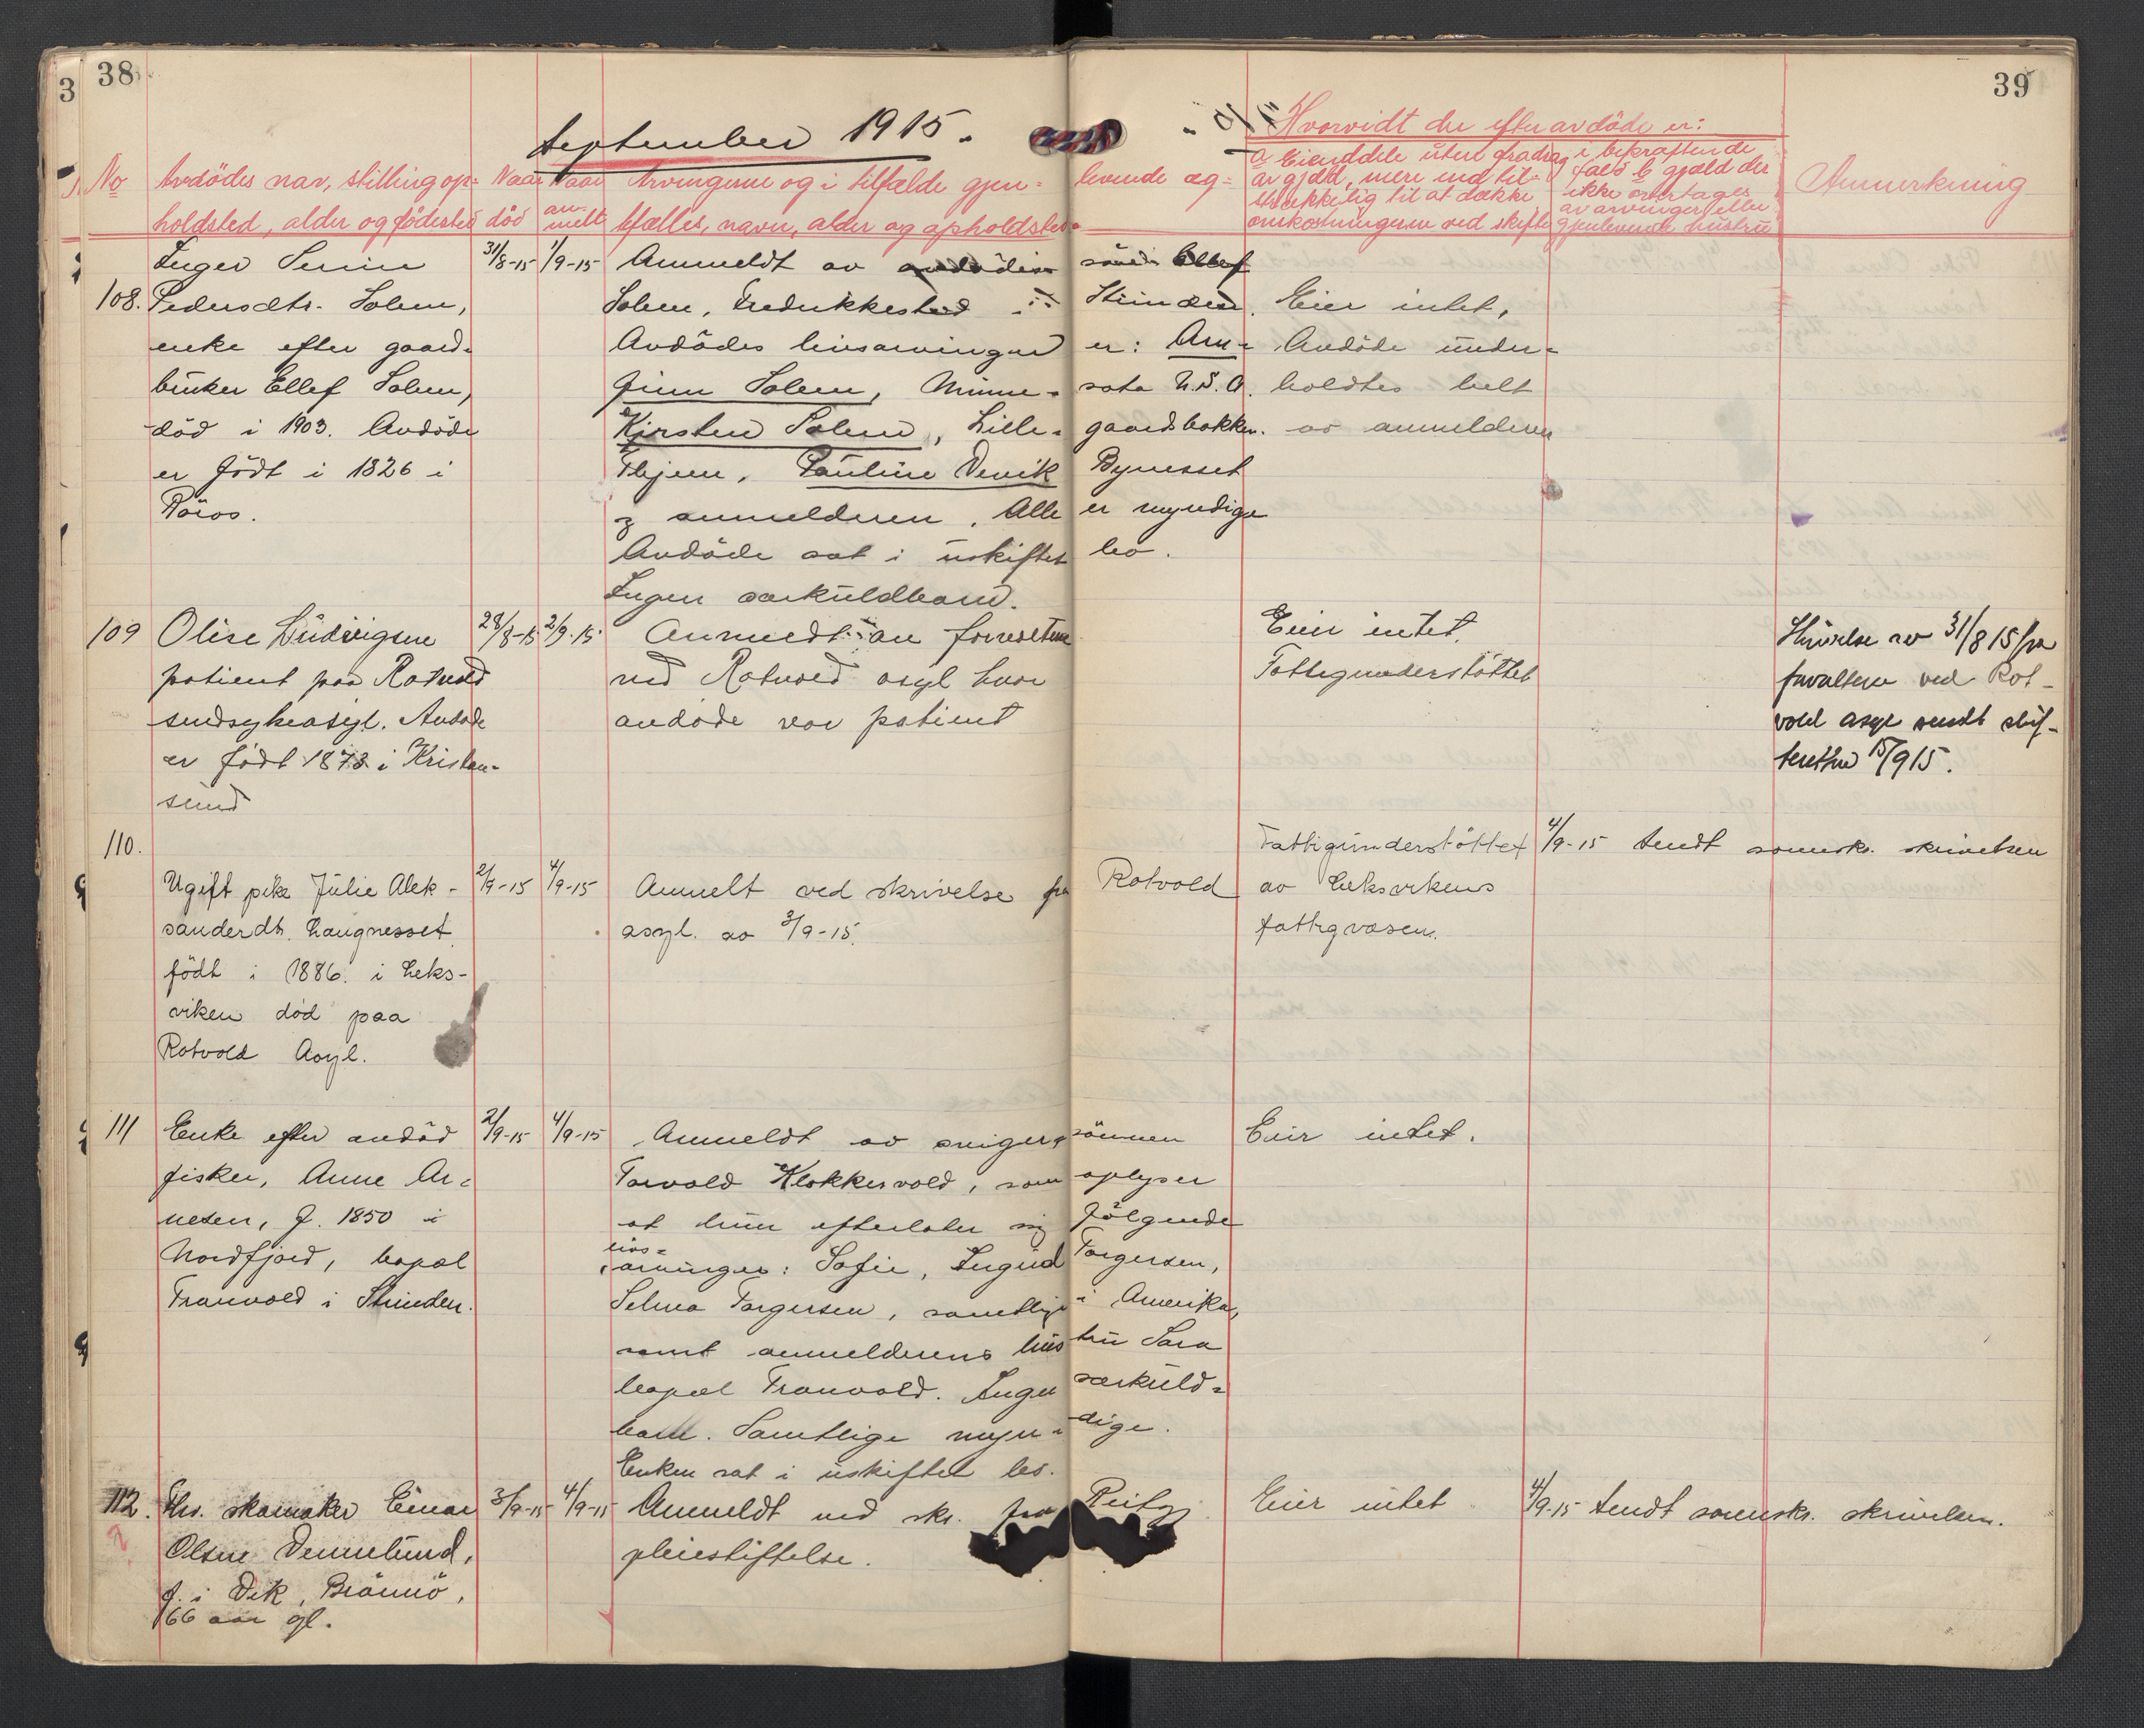 38
39
September 1915.
Hvorvidt der efter avdöde er:
No Avdödes nav, stilling op-
holdsted, alder og födested
Naar
död
Naar
an-
melt
Arvingerne og i tilfælde gjen- levende æg-
tefælles, navn, alder og opholdsted.
a Eienddele uten fradrag
av gjæld, mere end til-
strækkelig til at dække
omkostningerne ved skifte
i bekræftende
fald b gjæld der
ikke overtages
av arvinger eller
gjenlevende hustru
Anmerkning
108.
Inger Serine
Pedersdtr. Solem,
enke efter gaard-
bruker Ellef Solem,
död i 1903. Avdöde
er født i 1826 i
Röros.
31/8-15 1/9-15
Anmeldt av avdödes sön Ellef
Solem, Fredrikkestad i Strinden.
Avdödes livsarvinger er: Arn-
finn Solem, Minne- sota U.S.A.
Kirsten Solem, Lille- gaardsbakken.
Hjem, Pauline Devik Bynesset
og anmelderen. Alle er myndige
Avdöde sat i uskiftet bo.
Ingen særkuldbarn.
Eier intet,
Avdöde under-
holdtes helt
av anmelderen
109
Olise Ludvigsen
patient paa Rotvold
sindsykeasyl. Avdöde
er født 1873 i Kristian-
sund
28/8-15 2/9-15
Anmeldt av forvalteren
ved Rotvold asyl hvor
avdöde var patient
Eier intet.
Fattigunderstöttet
Skrivelse av 31/8 15 fra
forvalteren ved Rot-
vold asyl sendt skif-
teretten 15/9 15.
110.
Ugift pike Julie Alek-
sanderdtr. Haugnesset
födt i 1886. i Leks-
viken död paa
Rotvold Asyl.
2/9-15 4/9-15
Anmelt ved skrivelse fra Rotvold
asyl. av 3/9-15.
Fattigunderstöttet
av Leksvikens
fattigvæsen.
4/9-15 sendt sorensk. skrivelsen
111
Enke efter avdöd
fisker, Anne Ar-
nesen, f. 1850 i
Nordfjord, bopæl
Tranvold i Strinden.
2/9-15 4/9-15
Anmeldt av sviger- sönnen
Torvald Klokkervold, som oplyser
at hun efterlater sig følgende
livs-
arvinger: Sofie, Ingrid Torgersen,
Selma Torgersen, samtlige i Amerika,
samt anmelderens hus tru Sara
bopæl Tranvold. Ingen særkuld-
barn. Samtlige myn- dige.
Enken sat i uskiftet bo.
Eier intet.
112.
Fhv. skomaker Einar
Olsen Dennelund,
f. i Vik, Brönnö,
66 aar gl.
3/9-15 4/9-15
Anmeldt ved skr. fra Reitgj.
pleiestiftelse.
Eier intet
4/9-15 sendt sorensk. skrivelsen.